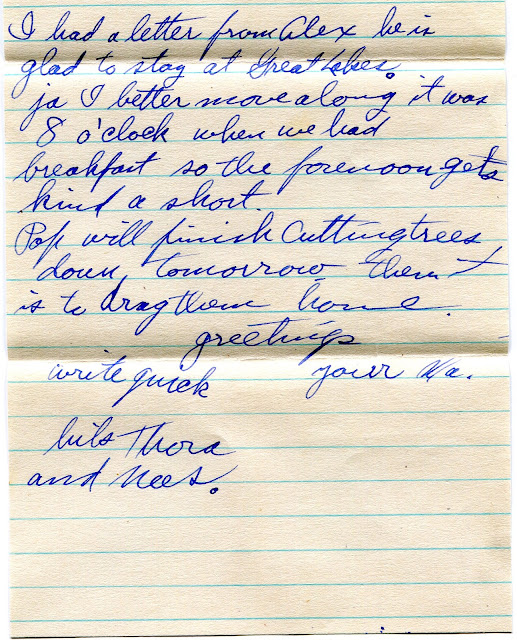 I had a letter from Alex he is
glad to stay at Great Lakes.
ja I better move along it was
8 o'clock when we had
breakfast so the forenoon gets
kind a short.
Pop will finish cutting trees
down, tomorrow then it
is to drag them home.
greetings
write quick your Ma.
hils Thora
and Nees.